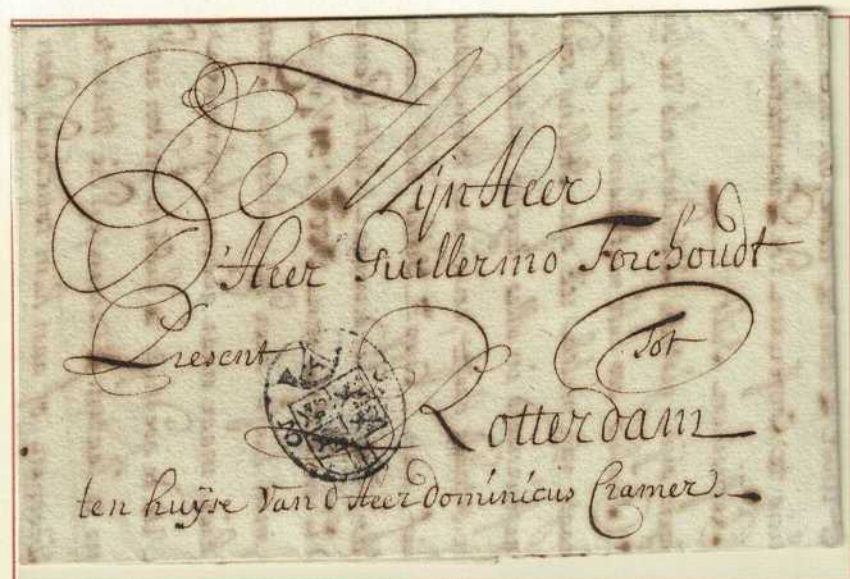 MijnHeer
D'Heer Guillermo Forchoudt
Present
Tot
Rotterdam
ten huÿse van d'Heer dominicus Cramer.